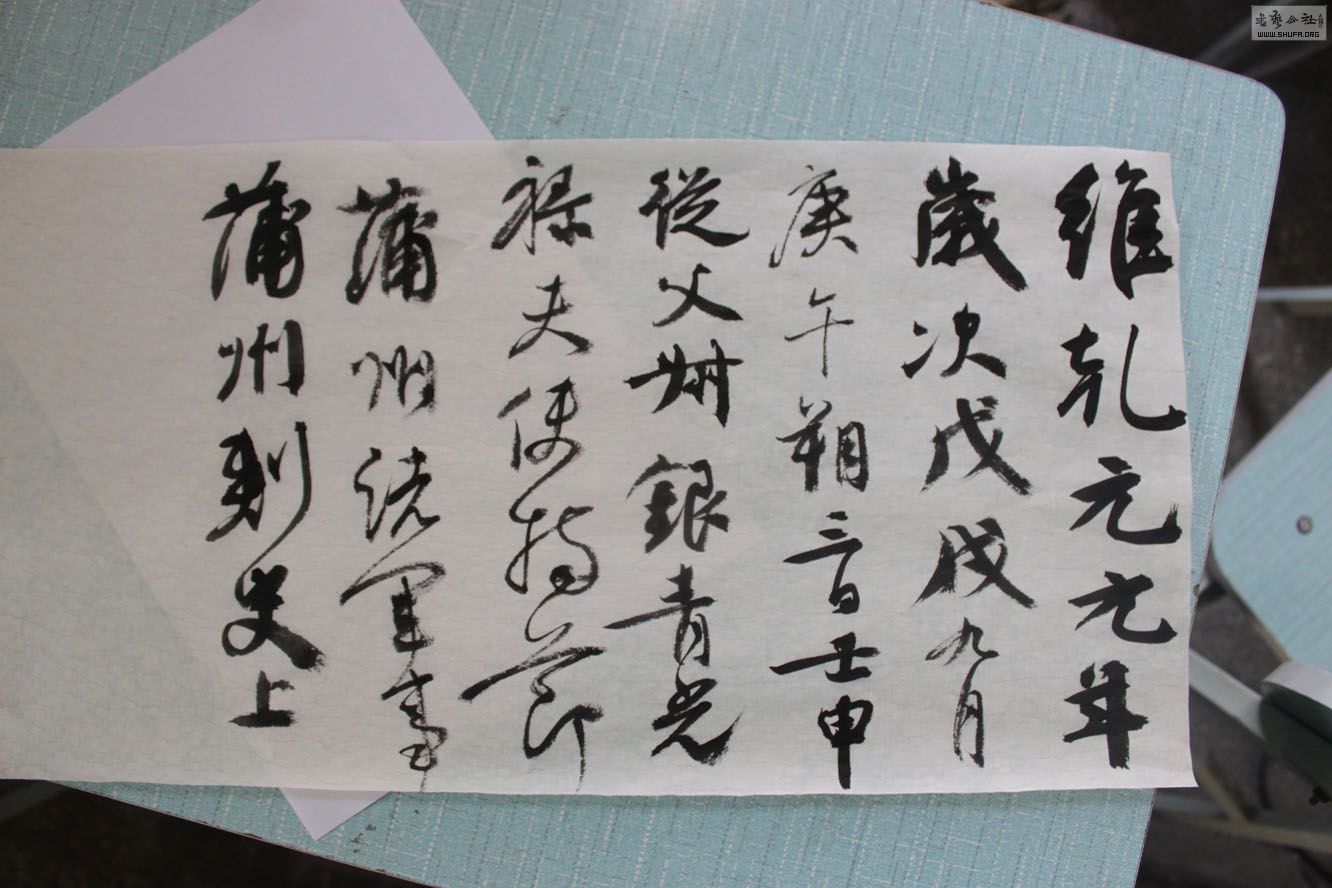 維乹元元年
歲次戊戌九月
庚午朔三日壬申
從父卅銀青光
祿夫使持節
蒲州諸軍事
蒲州刺史上
WWW.SHUFA.ORG